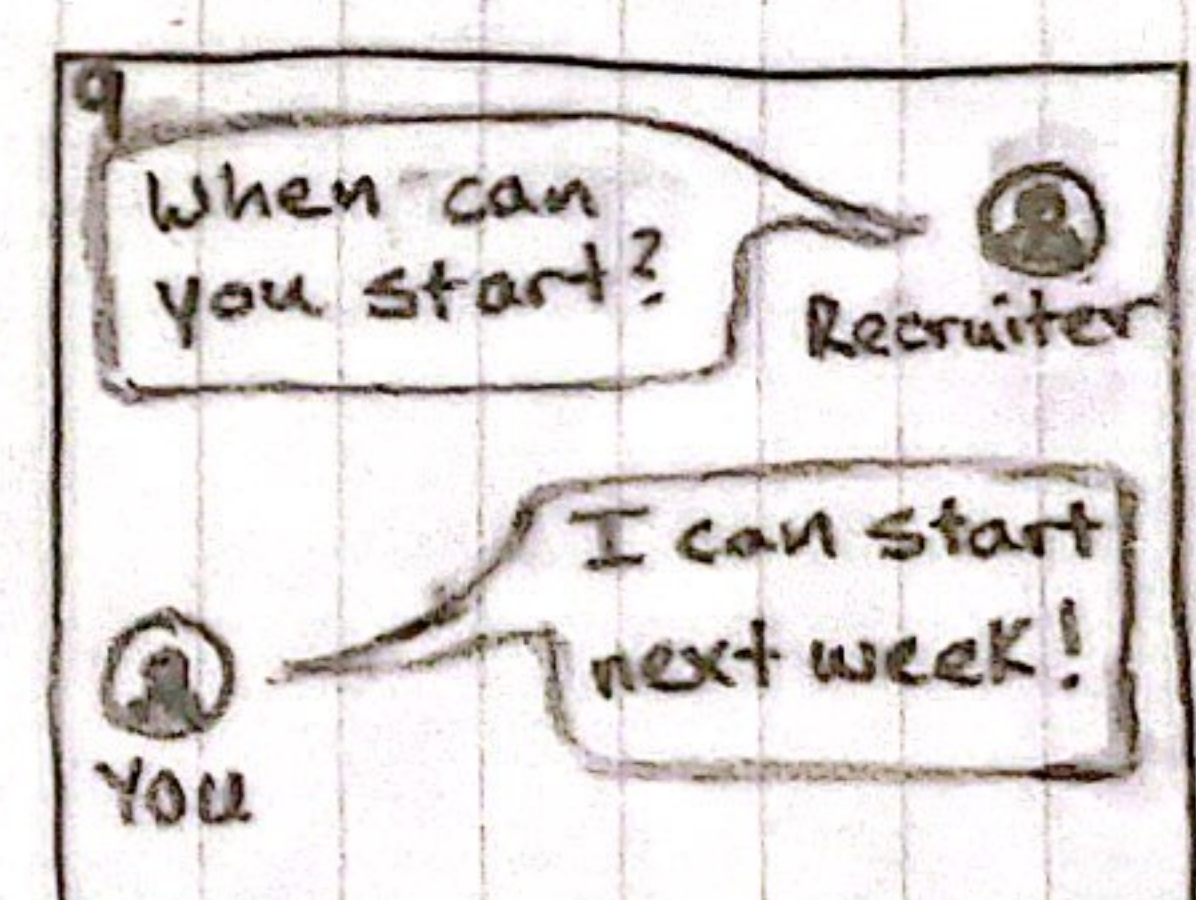 9
When can
you start?
Recruiter
I can start
next week!
You